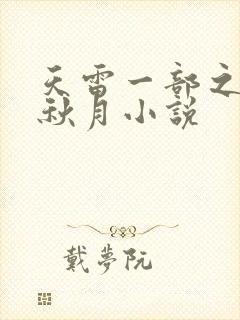 天雷一部之
秋月小説
戴夢阮